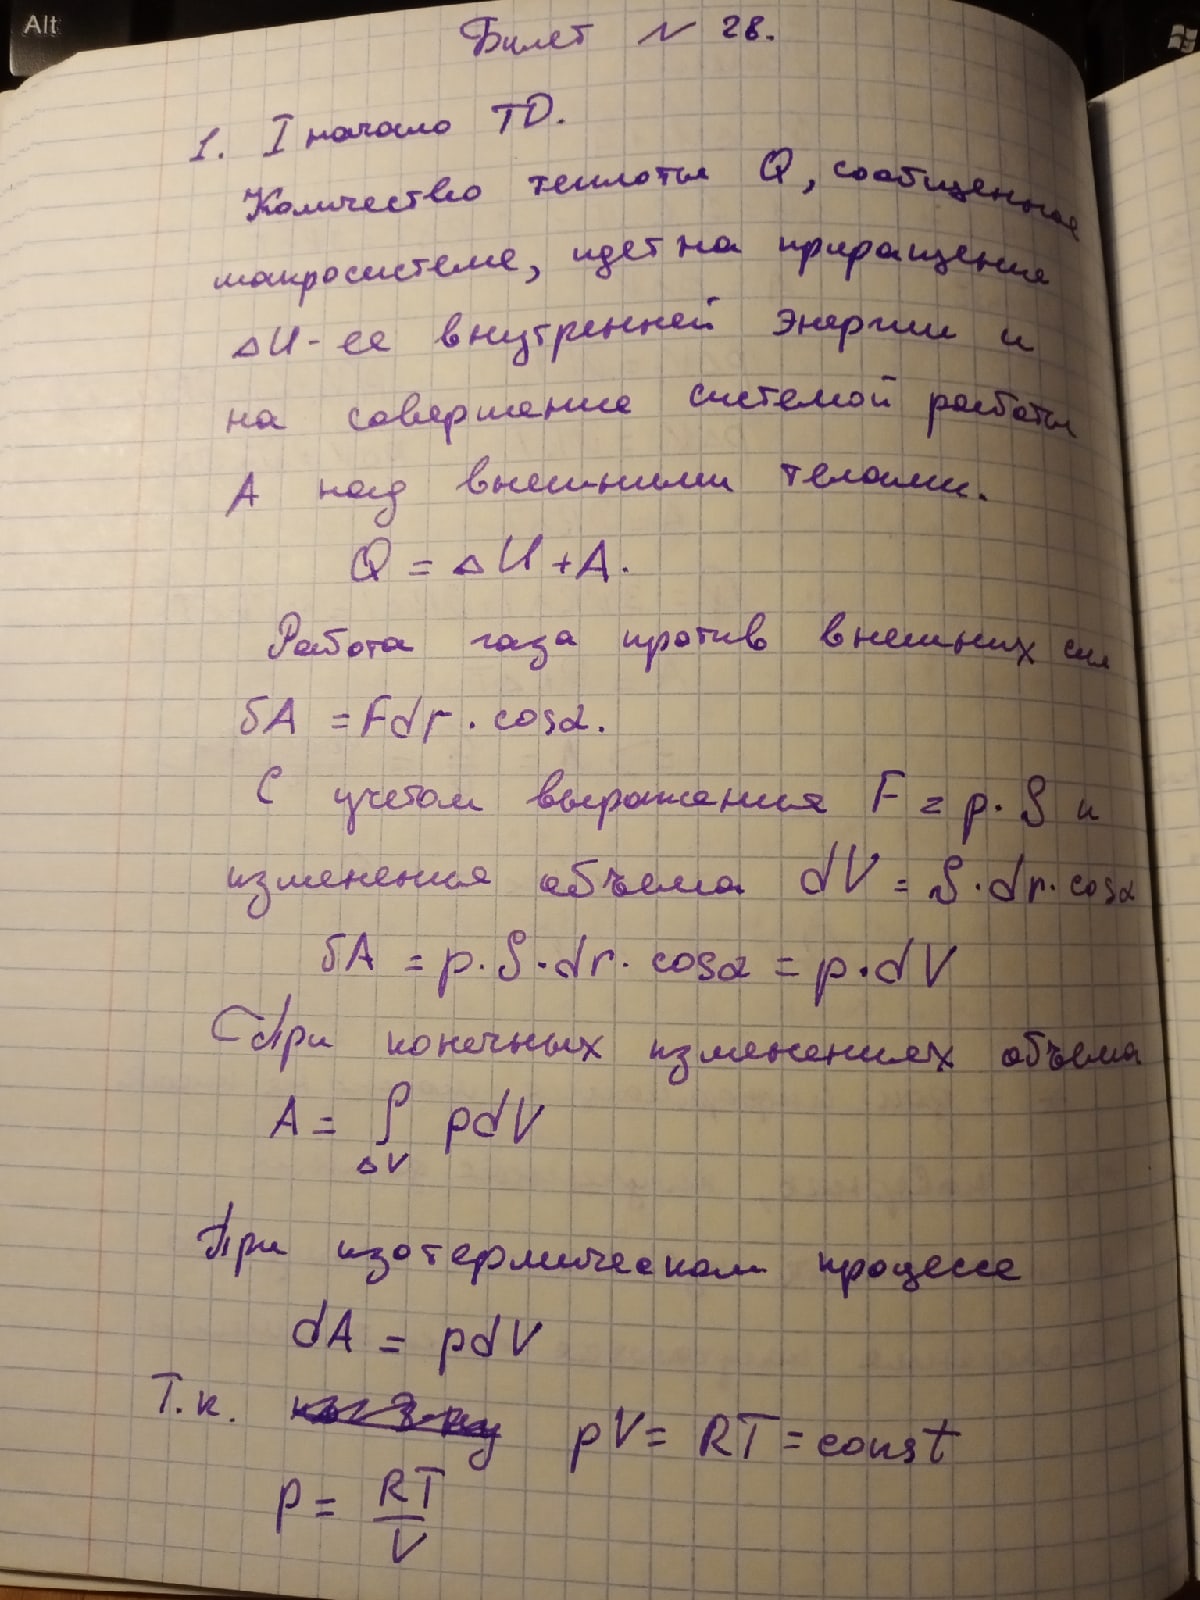 Alt
Билет № 28.
1. I начало ТD.
Количество теплоты Q, сообщенное
макросистеме, идет на приращение
ΔU - ее внутренней энергии и
на совершение системой работы
A над внешними телами.
Q = ΔU + A.
Работа газа против внешних сил
δA = Fdr · cosα.
С учетом выражения F = p · S и
изменения объема dV = S · dr · cosα
δA = p · S · dr · cosα = p · dV
При конечных изменениях объема
A = ∫ pdV
ΔV
При изотермическом процессе
dA = pdV
Т.к. pV = RT = const
P = RT/V